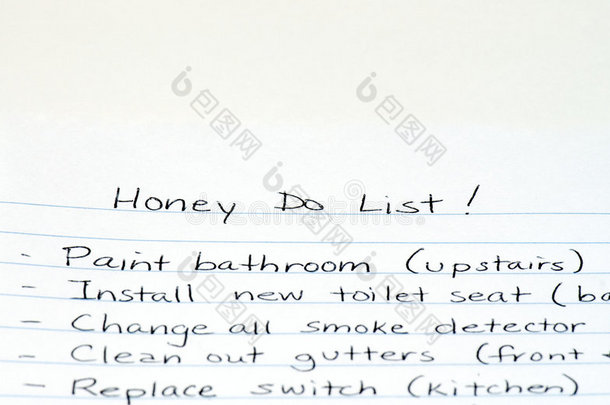 Honey Do List!
- Paint bathroom (upstairs)
- Install new toilet seat (ba
- Change all smoke detector
- Clean out gutters (front +
- Replace switch (kitchen)
包图网
包图网
包图网
包图网
包图网
包图网
dreamstime